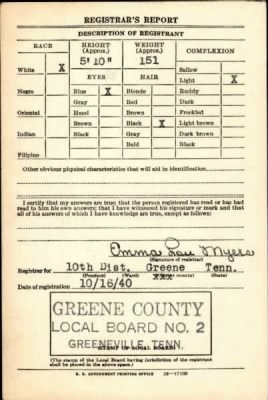 REGISTRAR'S REPORT
DESCRIPTION OF REGISTRANT
RACE HEIGHT (Approx.) WEIGHT (Approx.) COMPLEXION
5' 10" 151
White X Sallow
EYES HAIR Light X
Negro Blue X Blonde Ruddy
Gray Red Dark
Oriental Hazel Brown Freckled
Brown Black X Light brown
Indian Black Gray Dark brown
Bald Black
Filipino
Other obvious physical characteristics that will aid in identification
I certify that my answers are true; that the person registered has read or has had
read to him his own answers; that I have witnessed his signature or mark and that
all of his answers of which I have knowledge are true, except as follows:
Emma Lou Myers
(Signature of registrar)
Registrar for 10th Dist. Greene Tenn.
(Precinct) (Ward) (City or county) (State)
Date of registration 10/16/40
GREENE COUNTY
LOCAL BOARD NO. 2
GREENEVILLE, TENN.
(STAMP OF LOCAL BOARD)
(The stamp of the Local Board having jurisdiction of the registrant
shall be placed in the above space.)
U. S. GOVERNMENT PRINTING OFFICE 16—17105